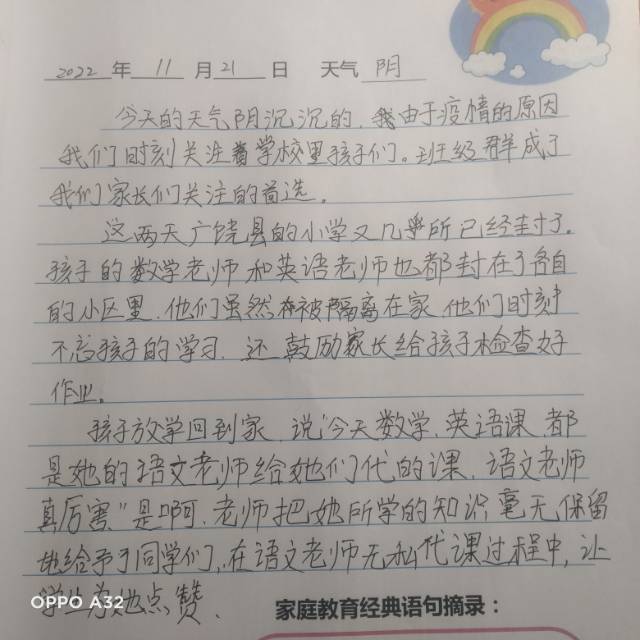 2022 年 11 月 21 日 天气 阴
今天的天气阴沉沉的，我由于疫情的原因
我们时刻关注着学校里孩子们。班级群成了
我们家长们关注的首选。
这两天广饶县的小学又几乎所已经封了。
孩子的数学老师和英语老师也都封在了各自
的小区里，他们虽然被隔离在家，他们时刻
不忘孩子的学习，还鼓励家长给孩子检查好
作业。
孩子放学回到家，说"今天数学，英语课，都
是她的语文老师给她们代的课，语文老师
真厉害"是啊，老师把她所学的知识毫无保留
地给予了同学们，在语文老师无私代课过程中，让
学生为她点赞。
OPPO A32
家庭教育经典语句摘录：